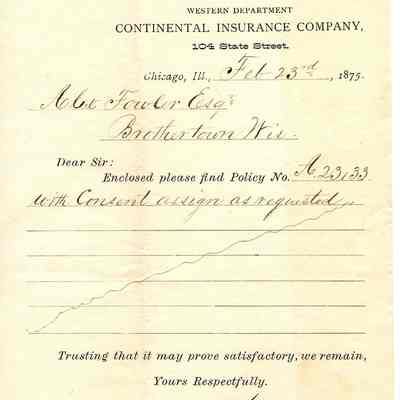 WESTERN DEPARTMENT
CONTINENTAL INSURANCE COMPANY,
104 State Street.
Chicago, Ill., Feb 23rd, 1875.
Fowler Esqr
Brothertown Wis.
Dear Sir:
Enclosed please find Policy No. A.23133
with Consent assign as requested
Trusting that it may prove satisfactory, we remain,
Yours Respectfully.